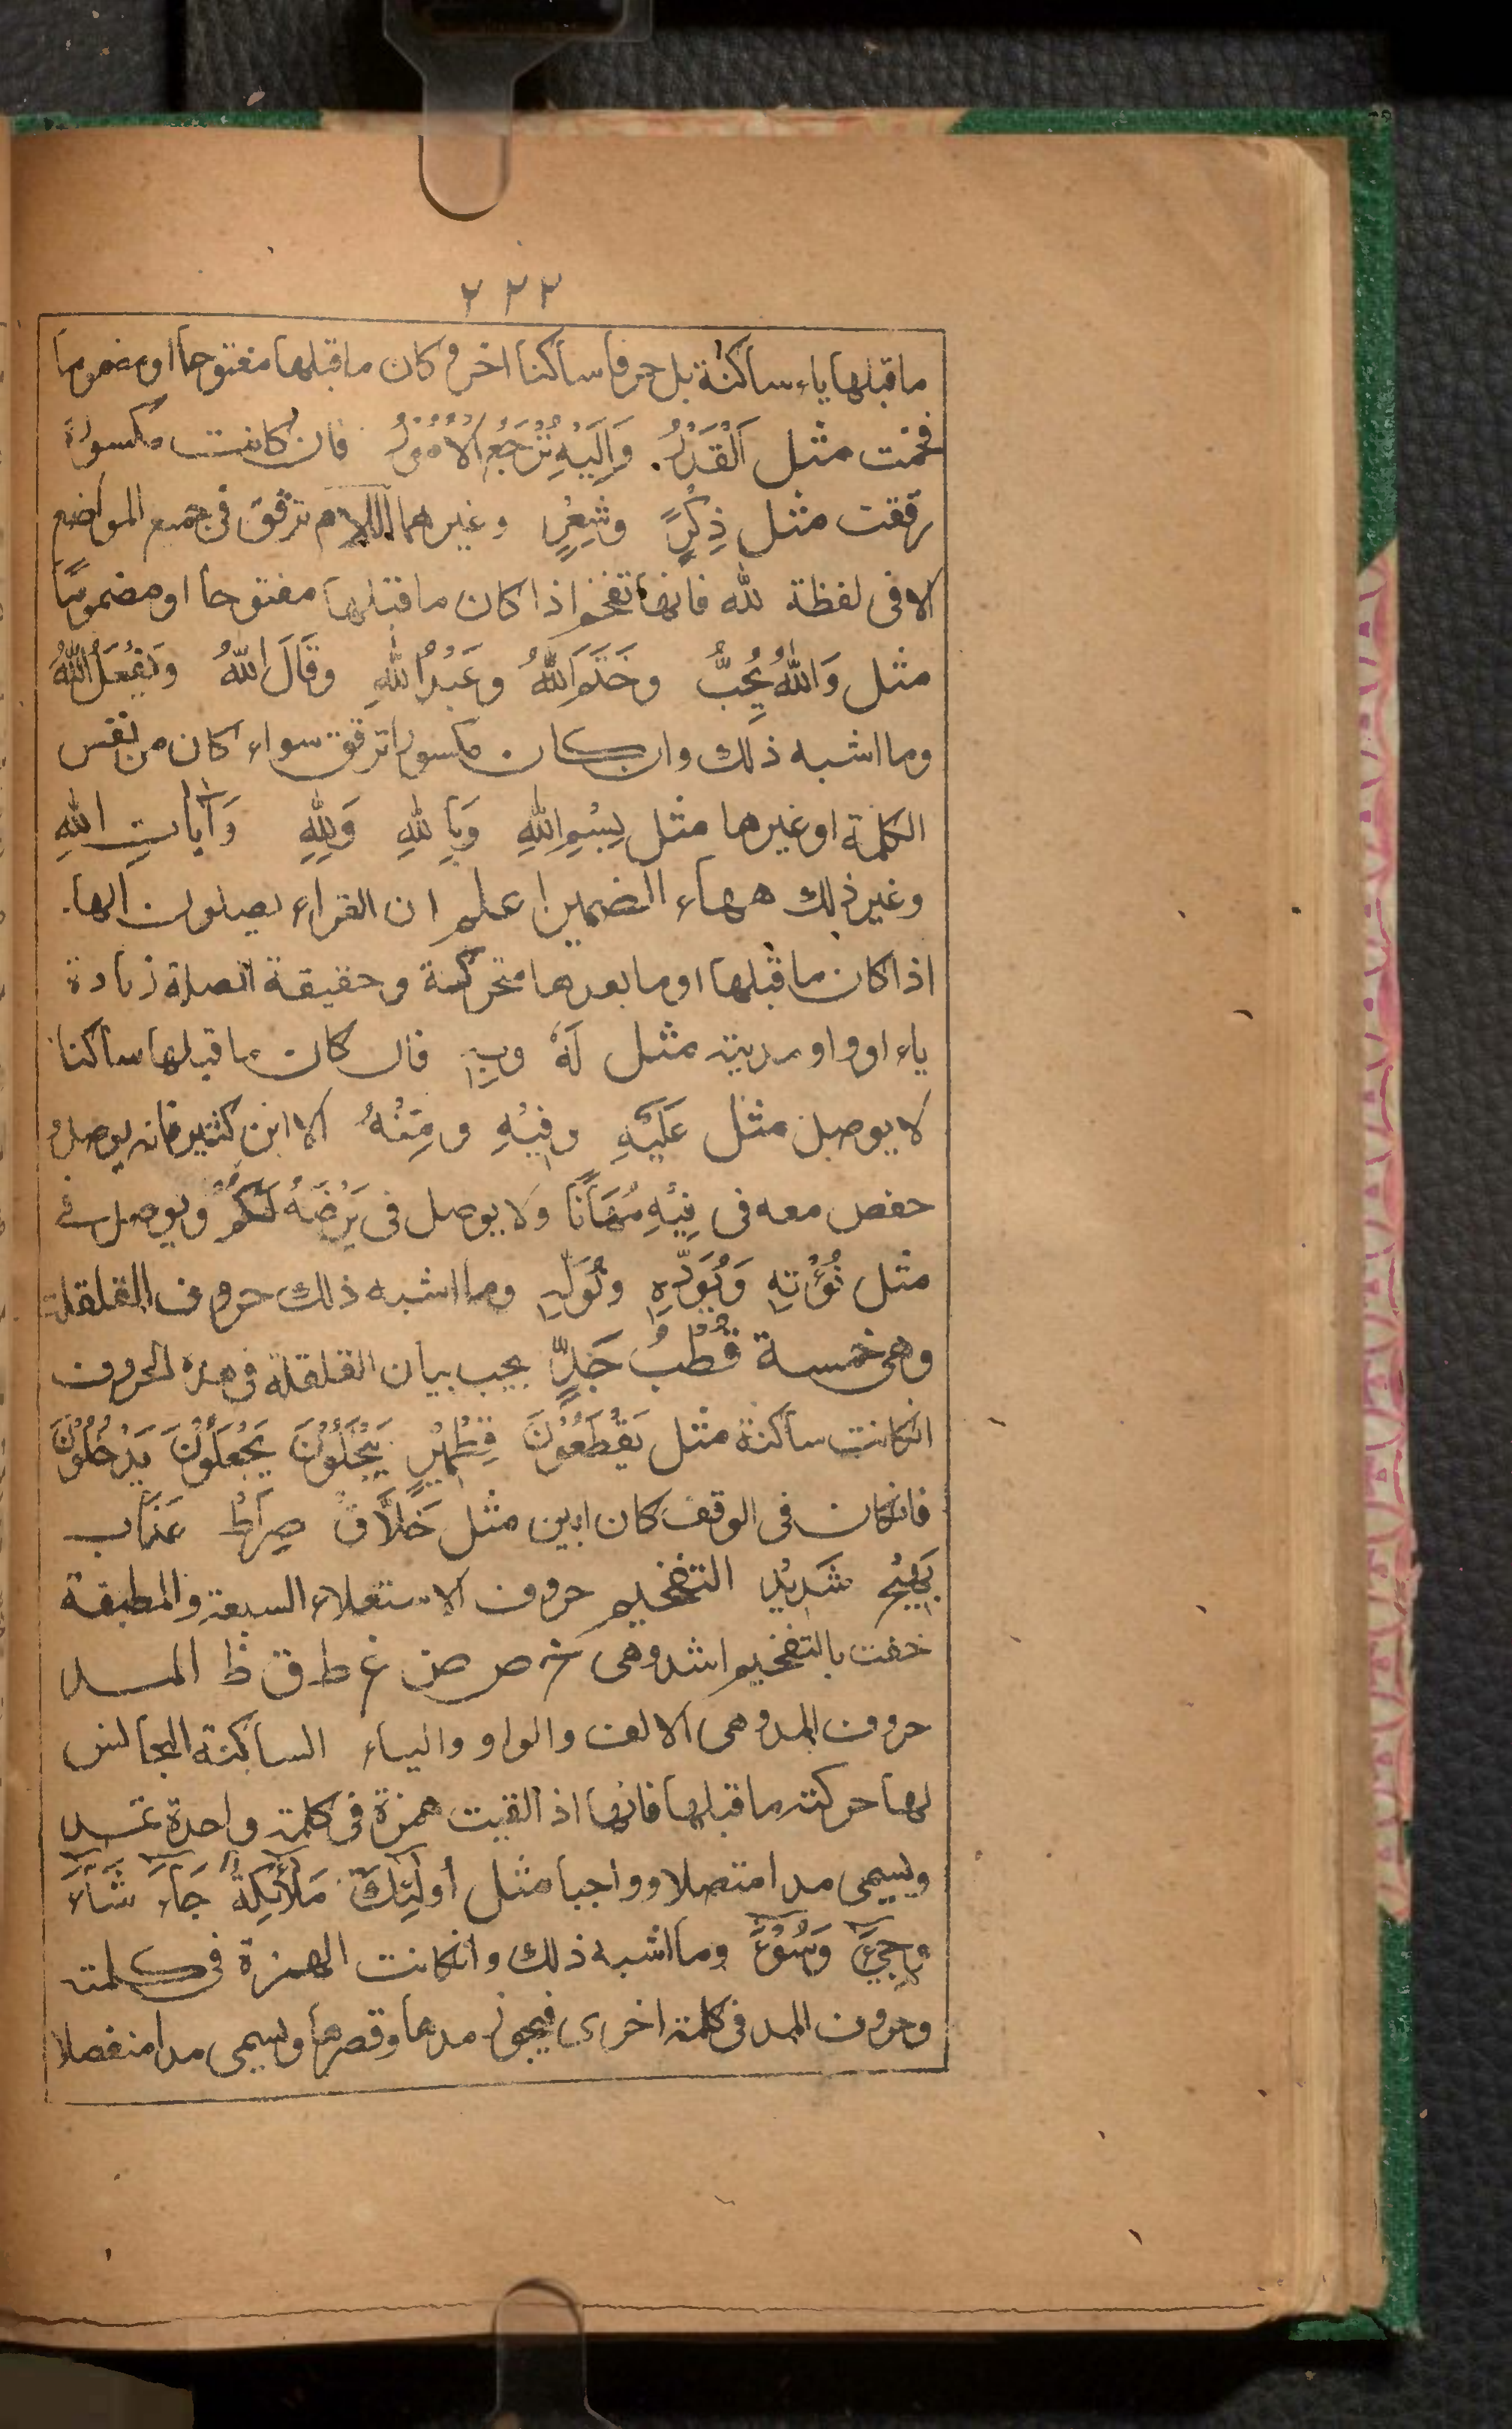 ٢٢٢
ما قبلها ياء ساكنة بل حرفا ساكنا اخر وكان ما قبلها مفتوحا او مضموما
فخمت مثل اَلْقَدْرُ. وَاِلَيْهِ تُرْجَعُ الْاُمُوْرُ فان كانت مكسورة
رققت مثل ذِكْرٍ وشِعْرٍ وغيرهما اللام ترقق فى جميع المواضع
الا فى لفظة لله فانها تفخم اذا كان ما قبلها مفتوحا او مضموما
مثل وَاللهُ يُحِبُّ وخَتَمَ اللهُ وعَبْدُ اللهِ وقَالَ اللهُ وَيَفْعَلُ اللهُ
وما اشبه ذلك وان كان مكسورا ترقق سواء كان من نفس
الكلمة او غيرها مثل بِسْمِ اللهِ وَبِاللهِ وَلِلهِ وَآيَاتِ اللهِ
وغير ذلك ههاء الضمير اعلم ان القراء يصلون الها.
اذا كان ما قبلها او ما بعدها متحركة وحقيقة الصلة زيادة
ياء او واو مدية مثل لَهٗ وبِهٖ فان كان ما قبلها ساكنا
لا يوصل مثل عَلَيْهِ وفِيْهِ ومِنْهُ الا ابن كثير فانه يوصل و
حفص معه فى فِيْهِ مُهَانًا ولا يوصل فى يَرْضَهُ لَكُمْ ويوصل فى
مثل نُؤْتِهٖ وَيُؤَدِّهٖ ونُوَلِّهٖ وما اشبه ذلك حروف القلقلة
وهى خمسة قُطْبُ جَدٍّ يجب بيان القلقلة فى هذه الحروف
انكانت ساكنة مثل يَقْطَعُوْنَ قِطْمِيْرٍ يَبْخَلُوْنَ يَجْعَلُوْنَ يَدْخُلُوْنَ
فانكان فى الوقف كان ابين مثل خَلَّاقْ صِرَاطْ عَذَابْ
بَهِيْجْ شَدِيْدْ التفخيم حروف الاستعلاء السبعة والمطبقة
خفت بالتفخيم اشد وهى خ ص ض غ ط ق ظ المد
حروف المد وهى الالف والواو والياء الساكنة المجالس
لها حركته ما قبلها فانها اذ القيت همزة فى كلمة واحدة تمد
ويسمى مدا متصلا وواجبا مثل أُولٰئِكَ مَلٰٓئِكَةُ جَآءَ شَآءَ
وجِيْءَ وَسُوْءَ وما اشبه ذلك وانكانت الهمزة فى كلمة
وحروف المد فى كلمة اخرى فيجوز مدها وقصرها ويسمى مدا منفصلا